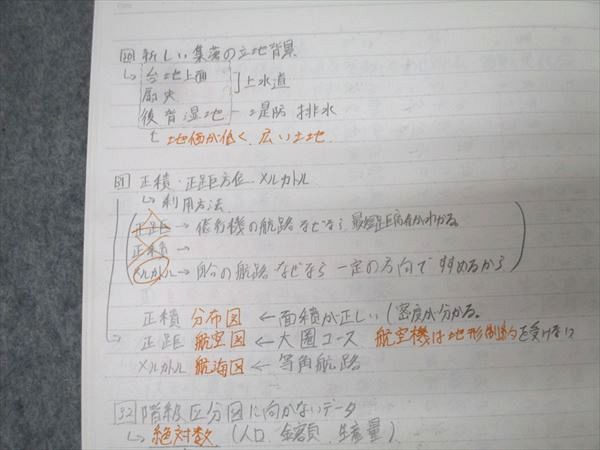 30 新しい集落の立地背景
↳ 台地上面
扇央 ] 上水道
後背湿地 ─ 堤防 排水
↳ 地価が低く、広い土地
31 正積・正距方位 メルカトル
↳ 利用方法
正距 → 飛行機の航路 なぜなら 最短距離がわかる。
正積 →
メルカトル → 船の航路 なぜなら 一定の方向で すすめるから
正積 分布図 ← 面積が正しい (密度が分かる。
→ 正距 航空図 ← 大圏コース 航空機は地形制約を受けない
メルカトル 航海図 ← 等角航路
32 階級区分図に向かないデータ
↳ 絶対数 (人口、金額、生産量)